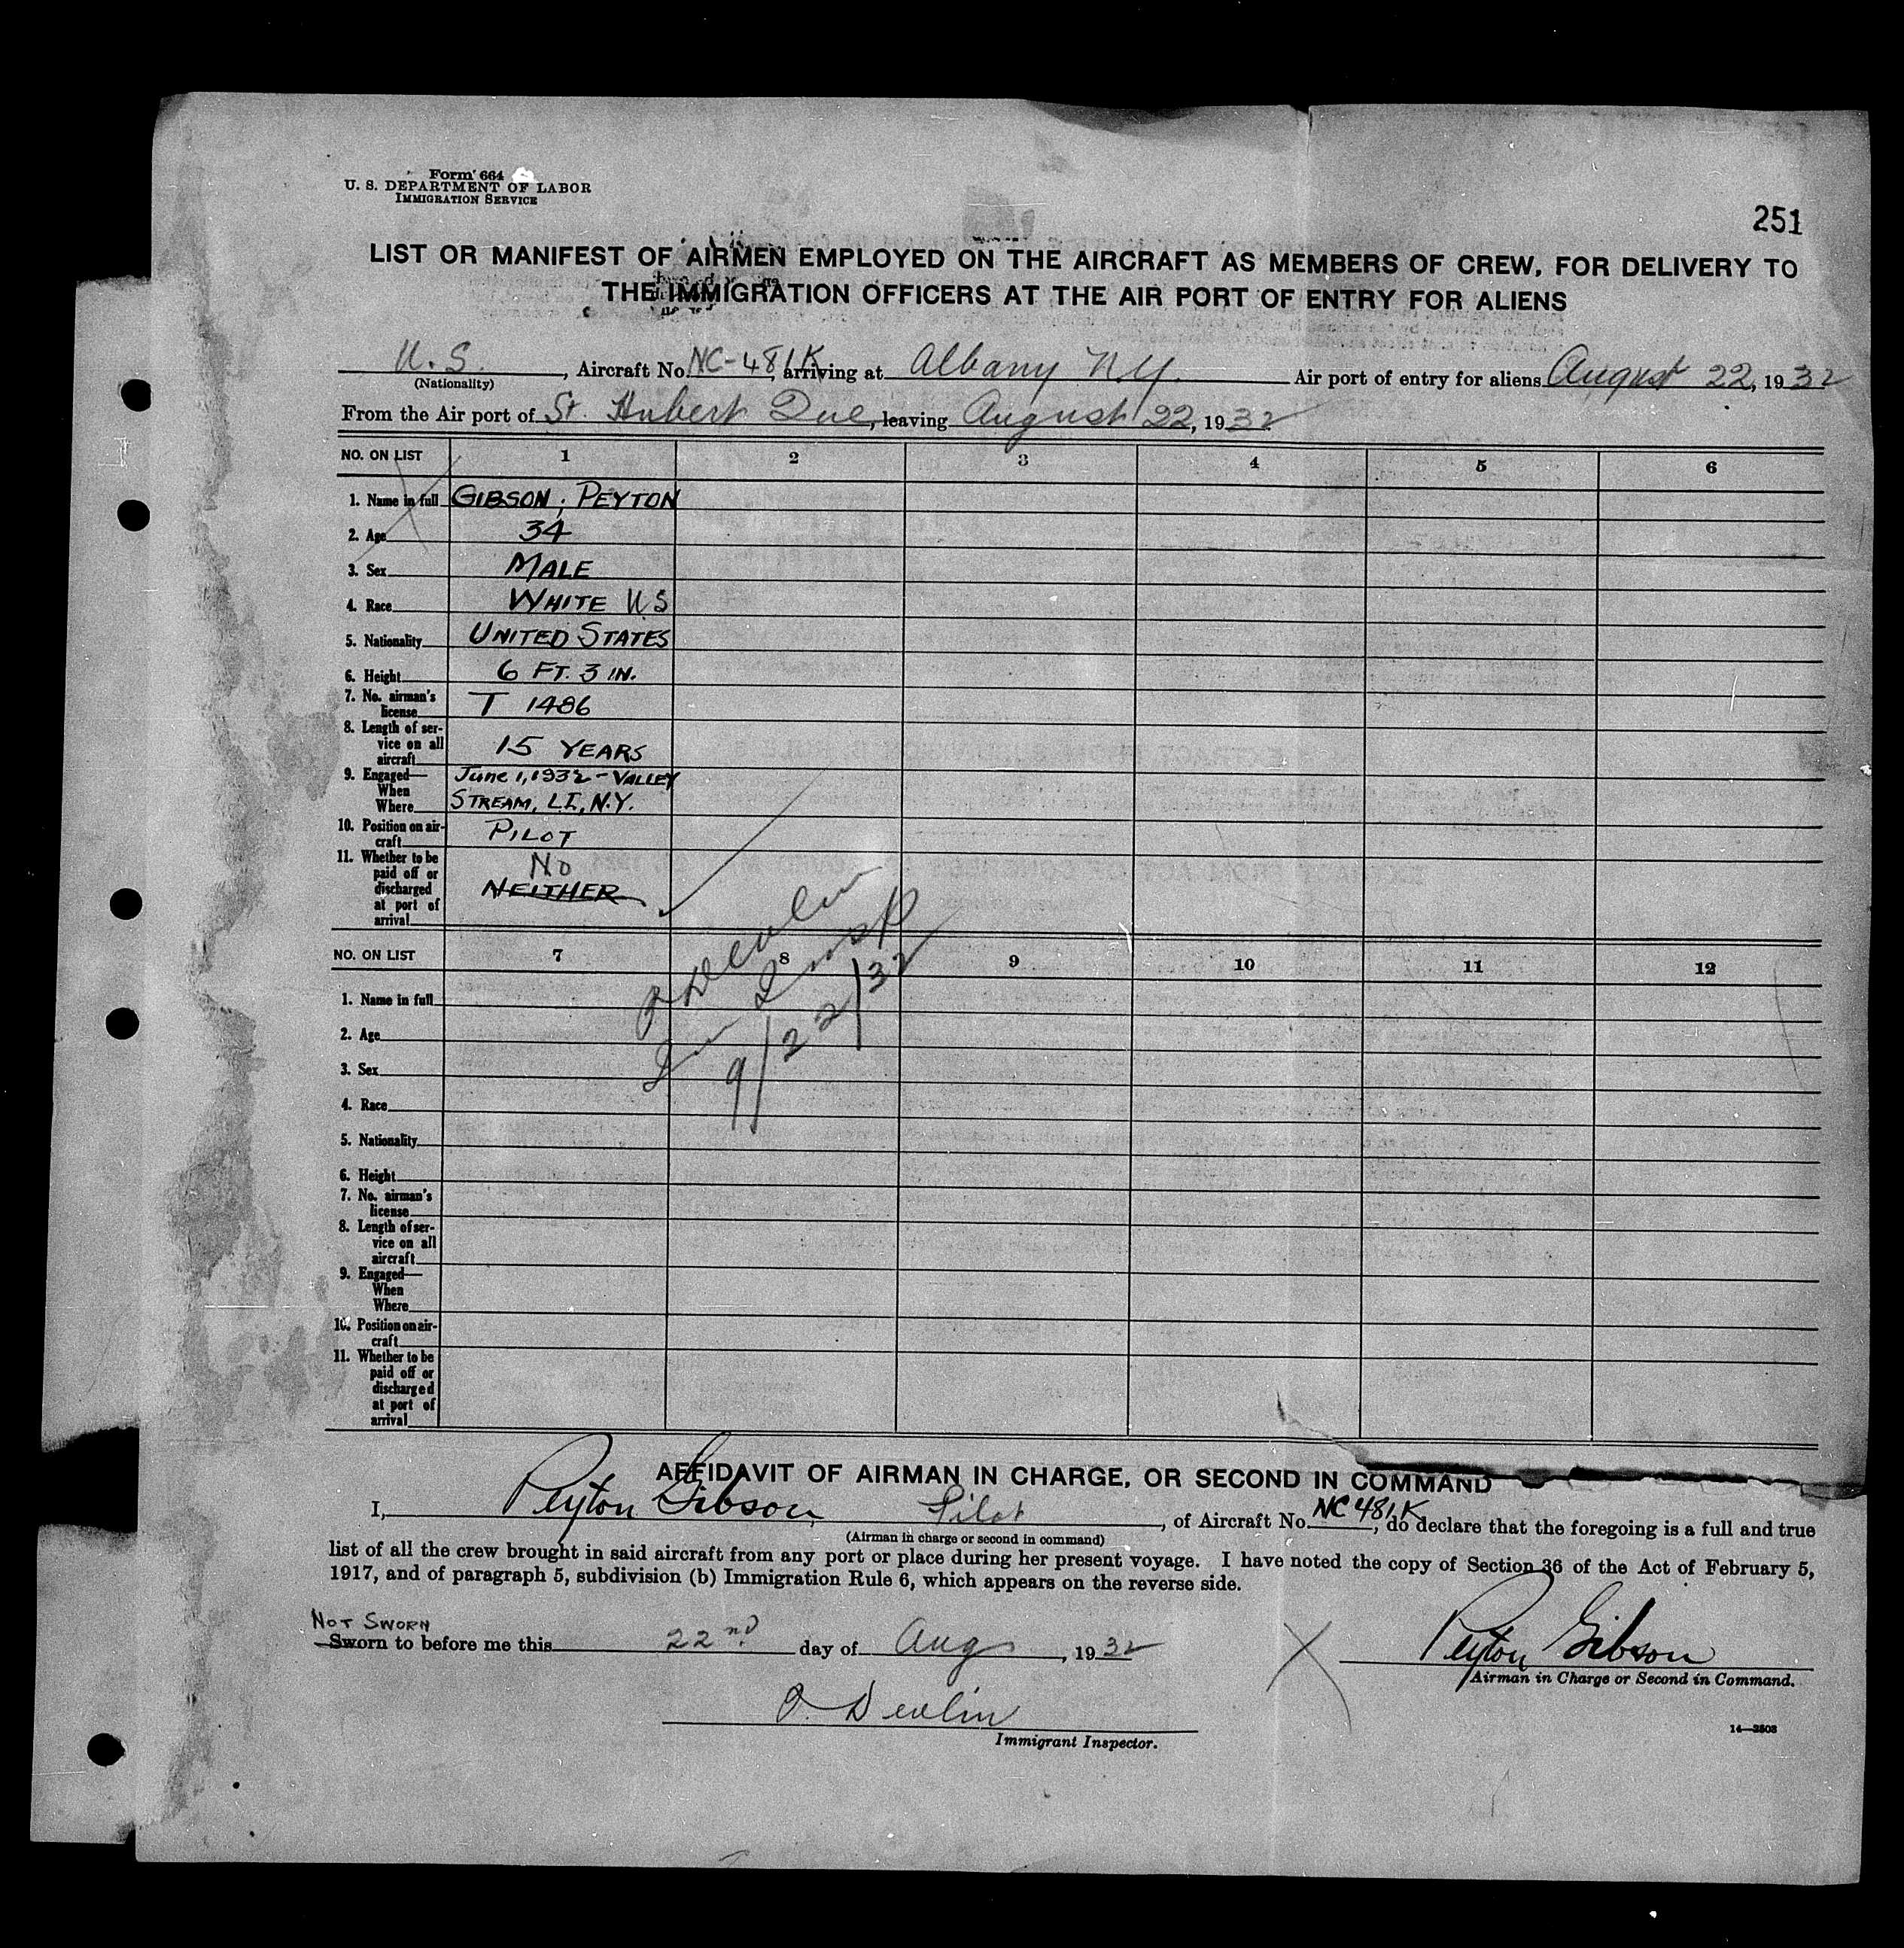 Form 664
U. S. DEPARTMENT OF LABOR
IMMIGRATION SERVICE
251
LIST OR MANIFEST OF AIRMEN EMPLOYED ON THE AIRCRAFT AS MEMBERS OF CREW, FOR DELIVERY TO
THE IMMIGRATION OFFICERS AT THE AIR PORT OF ENTRY FOR ALIENS
U.S., Aircraft No. NC-481K, arriving at Albany N.Y. Air port of entry for aliens August 22, 1932
(Nationality)
From the Air port of St. Hubert Que, leaving August 22, 1932
NO. ON LIST 1 2 3 4 5 6
1. Name in full GIBSON, PEYTON
2. Age 34
3. Sex MALE
4. Race WHITE US
5. Nationality UNITED STATES
6. Height 6 FT. 3 IN.
7. No. airman's
license T 1486
8. Length of ser-
vice on all
aircraft 15 YEARS
9. Engaged— June 1, 1932 - VALLEY
When
Where STREAM, L.I., N.Y.
10. Position on air-
craft PILOT
11. Whether to be
paid off or No
discharged NEITHER
at port of
arrival
NO. ON LIST 7 8 9 10 11 12
1. Name in full
2. Age
3. Sex
4. Race
5. Nationality
6. Height
7. No. airman's
license
8. Length of ser-
vice on all
aircraft
9. Engaged—
When
Where
10. Position on air-
craft
11. Whether to be
paid off or
discharged
at port of
arrival
Devlin
Insp
9/22/32
AFFIDAVIT OF AIRMAN IN CHARGE, OR SECOND IN COMMAND
I, Peyton Gibson, Pilot, of Aircraft No. NC481K, do declare that the foregoing is a full and true
(Airman in charge or second in command)
list of all the crew brought in said aircraft from any port or place during her present voyage. I have noted the copy of Section 36 of the Act of February 5,
1917, and of paragraph 5, subdivision (b) Immigration Rule 6, which appears on the reverse side.
NOT SWORN
Sworn to before me this 22nd day of Aug, 1932
Peyton Gibson
Airman in Charge or Second in Command.
Devlin
Immigrant Inspector.
14—2508